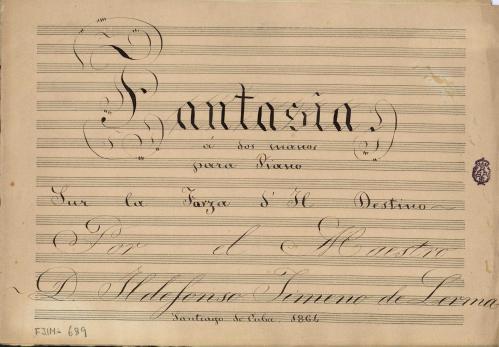 Fantasia
á dos manos
para Piano
Sur la Forza d' Il Destino
Por el Maestro
D. Ildefonso Jimeno de Lerma
Santiago de Cuba, 1864
FJIM= 689